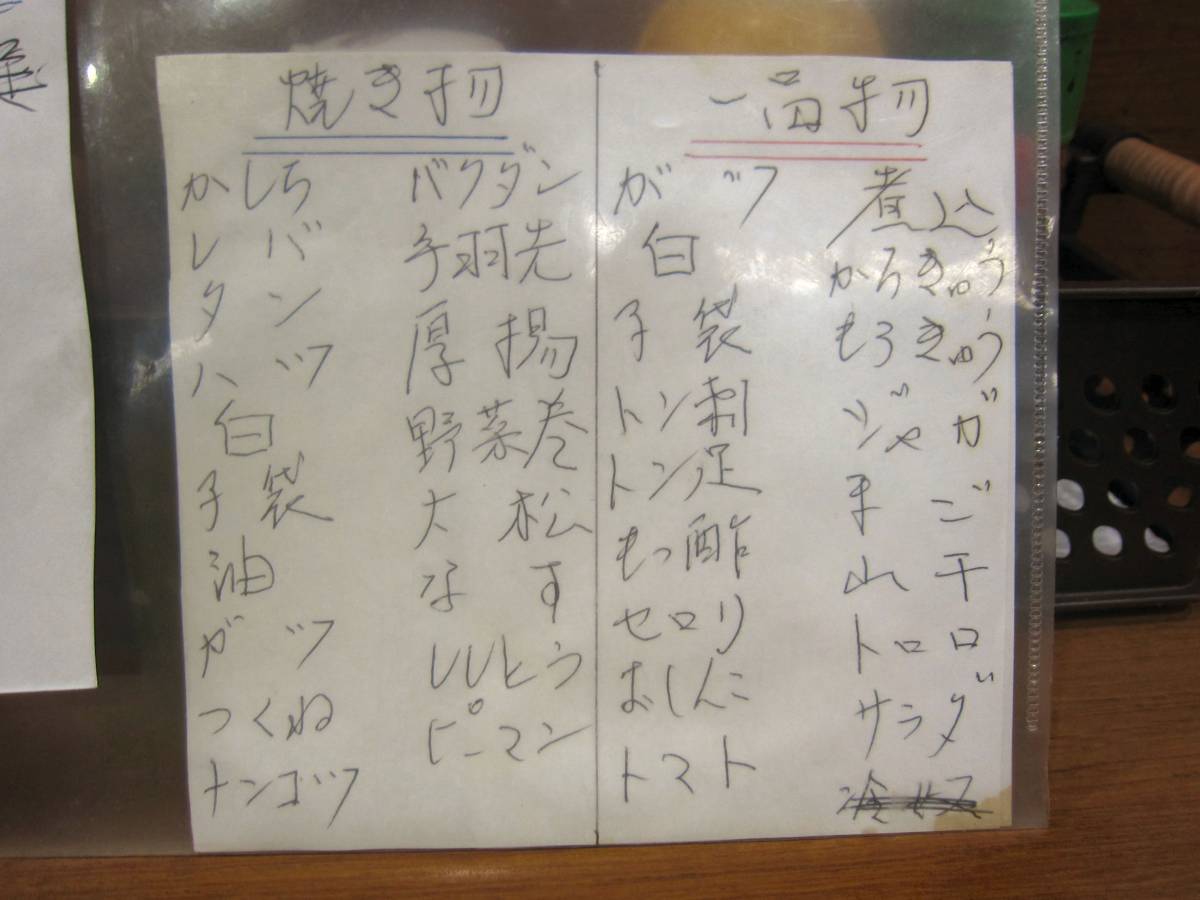 焼き物
かしら
レバ
タン
ハツ
白
子袋
油
ガツ
つくね
ナンコツ
バクダン
手羽先
厚揚
野菜巻
大松
なす
ししとう
ピーマン
一品物
がツ
白
子袋
トン刺
トン足
もつ酢
セロリ
おしんこ
トマト
煮込
かろきゅう
もろきゅう
ジャガ
山干
トロロ
サラダ